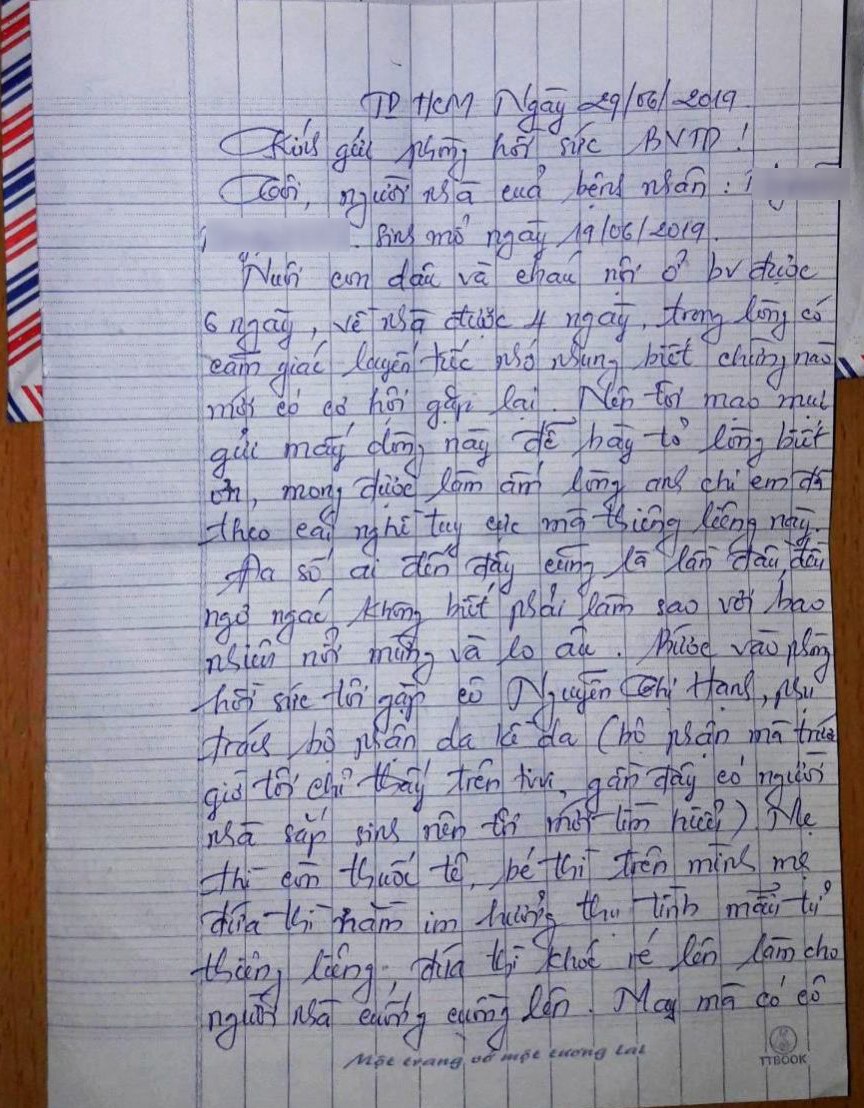 TP HCM Ngày 29/06/2019
Kính gửi phòng hồi sức BVTD!
Tôi, người nhà cuả bệnh nhân :
. Sinh mổ ngày 19/06/2019.
Nuôi con dâu và cháu nội ở bv được
6 ngày, về nhà được 4 ngày, trong lòng có
cảm giác luyến tiếc nhớ nhung biết chừng nào
mới có cơ hội gặp lại. Nên tôi mạo muị
gửi mấy dòng này để bày tỏ lòng biết
ơn, mong được làm ấm lòng anh chị em đã
theo cái nghề tuy cực mà thiêng liêng này.
Đa số ai đến đây cũng là lần đầu, đầy
ngơ ngác không biết phải làm sao với bao
nhiêu nỗi mừng và lo âu. Bước vào phòng
hồi sức tôi gặp cô Nguyễn Thị Hạnh, phụ
trách bộ phận da kề da (bộ phận mà trước
giờ tôi chỉ thấy trên tivi, gần đây có người
nhà sắp sinh nên tôi mới tìm hiểu). Mẹ
thì còn thuốc tê, bé thì trên mình mẹ
đứa thì nằm im hưởng thụ tình mẫu tử
thiêng liêng, đứa thì khóc ré lên làm cho
người nhà cuống cuồng lên. May mà có cô
Một trang vở một tương lai
TTBOOK